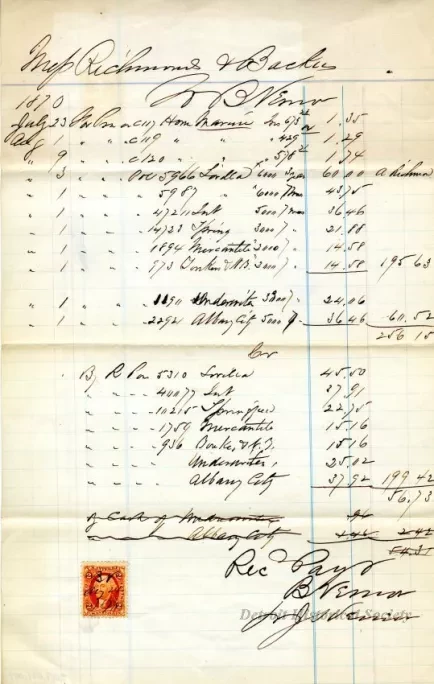 Mess Richmond & Backus
To B Vernor
1870
July 23 Pre Prm on C119 Home Marine Ins 675 00 1.35
Aug 1 " " C119 " " 429 1.29
" 9 " " C120 " " 578 1.74
" 3 " " Pol 5966 Lorillard 6000 3 yrs 60.00 A Richmond
" 1 " " " 5987 " 6000 43.75
" 1 " " " 47211 Int 5000 36.46
" 1 " " " 14723 Spring 3000 21.88
" 1 " " " 1894 Mercantile 2000 14.58
" 1 " " " 973 Yonkers & N.Y. 2000 14.58 195.63
" 1 " " 11911 Underwriters 3300 24.06
" 1 " " 2292 Albany City 5000 36.46 60.52
256 15
Cr
By R Pre 5310 Lorillard 45.50
" " " " 40077 Int 37.91
" " " " 10215 Springfield 22.75
" " " " 1759 Mercantile 15.16
" " " " 936 Yonkers & N.Y. 15.16
" " " " Underwriters 25.02
" " " " Albany City 37.92 199 42
56.73
of Cash of Underwriters .96
Albany City 1.46 2.42
54.31
Recd Payt
B Vernor
Detroit Historical Society